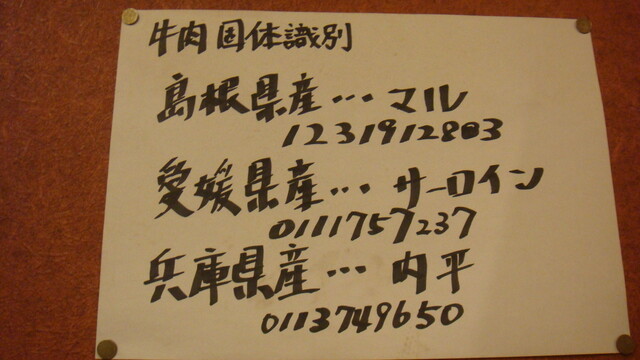 牛肉固体識別
島根県産…マル
1231912803
愛媛県産…サーロイン
0111757237
兵庫県産…内平
0113749650